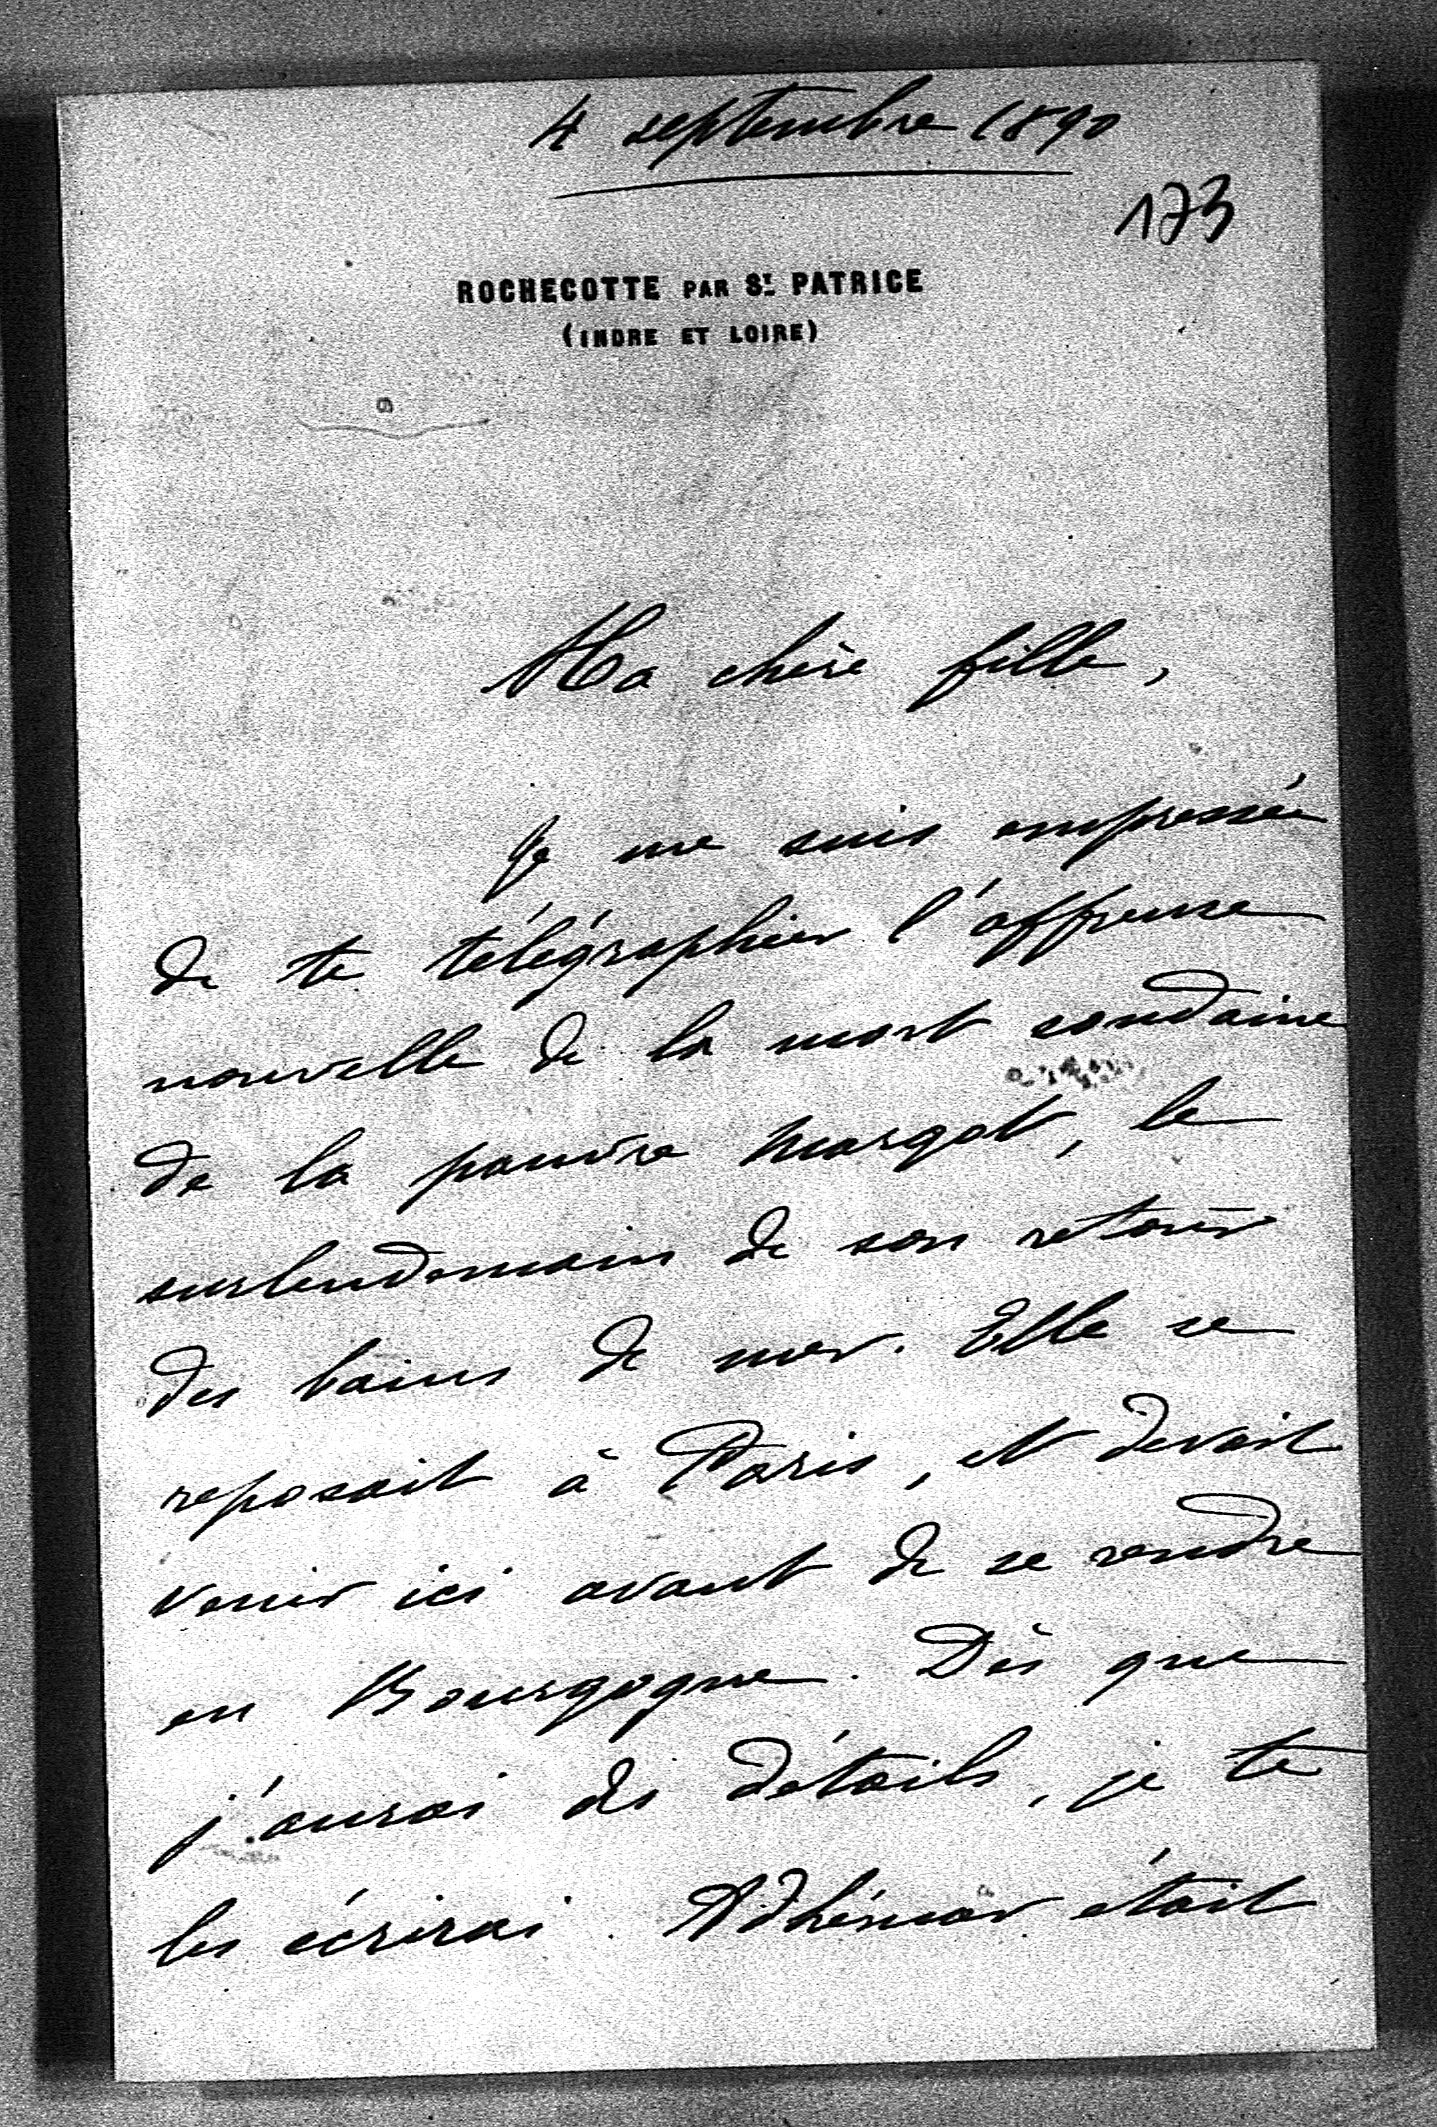 4 septembre 1890
173
ROCHECOTTE PAR ST. PATRICE
(INDRE ET LOIRE)
Ma chère fille,
Je me suis empressée
de te télégraphier l'affreuse
nouvelle de la mort soudaine
de la pauvre Margot, le
surlendemain de son retour
des bains de mer. Elle se
reposait à Paris, et devait
venir ici avant de se rendre
en Bourgogne. Dès que
j'aurai des détails, je te
les écrirai. Adhémar était